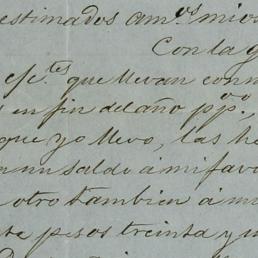 estimados am.os mios
Con la g
efc.tes que llevan conm
en fin del año pp.o,
que yo llevo, las he
un saldo á mi favo
otro tambien á m
pesos treinta y u